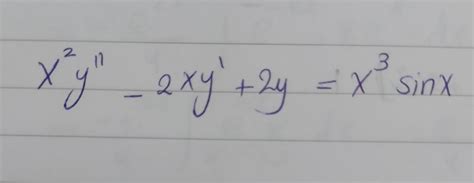 x²y'' - 2xy' + 2y = x³ sinx